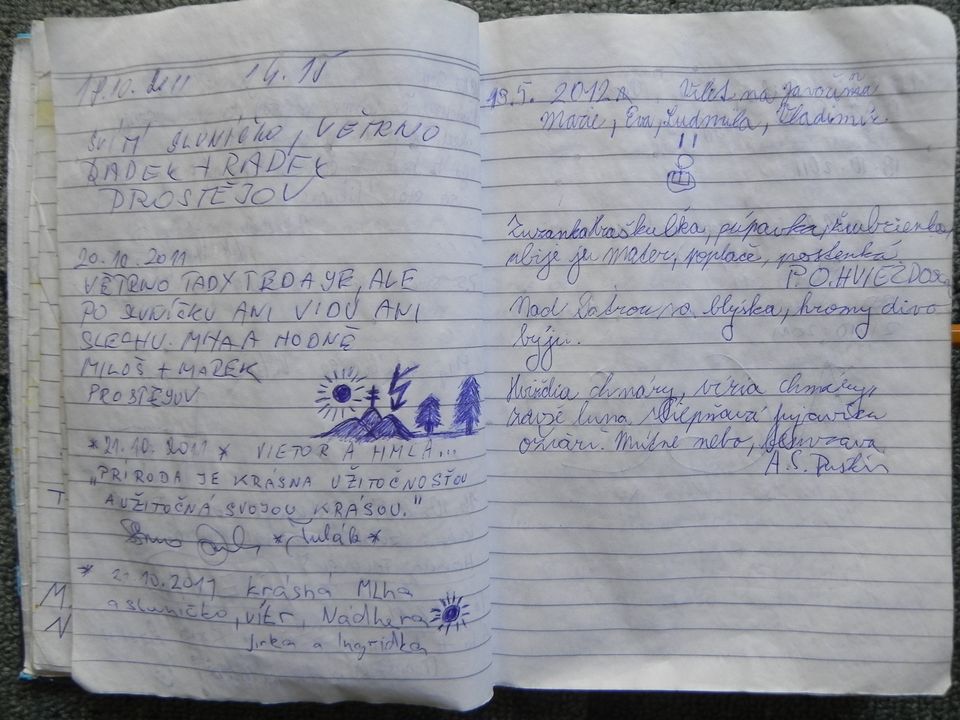 17.10.2011 14.15
SVÍTÍ SLUNÍČKO, VĚTRNO
RADEK + RADEK
PROSTĚJOV
20.10.2011
VĚTRNO TADY TEDA JE, ALE
PO SLUNÍČKU ANI VIDU ANI
SLECHU. MLHA HODNĚ
MILOŠ + MAREK
PROSTEJOV
*21.10.2011 * VIETOR A HMLA...
„PRÍRODA JE KRÁSNA UŽITOČNOSŤOU
A UŽITOČNÁ SVOJOU KRÁSOU."
*tulák*
* 21.10.2011 krásná Mlha
a sluníčko, vítr, Nádhera
Jirka a Ingridka
T.
M.
N
13.5. 2012 Výlet na Javořina
Marie, Eva, Ludmila, Vladimír
Zuzanka Hraškulka,
ubije ju mater, poplače,
P.O. HVIEZDOSL
Nad Tatrou sa blýska, hromy divo
byjú.
chmáry, víria chmáry,
luna.
Mútne nebo,
A.S. Puškin